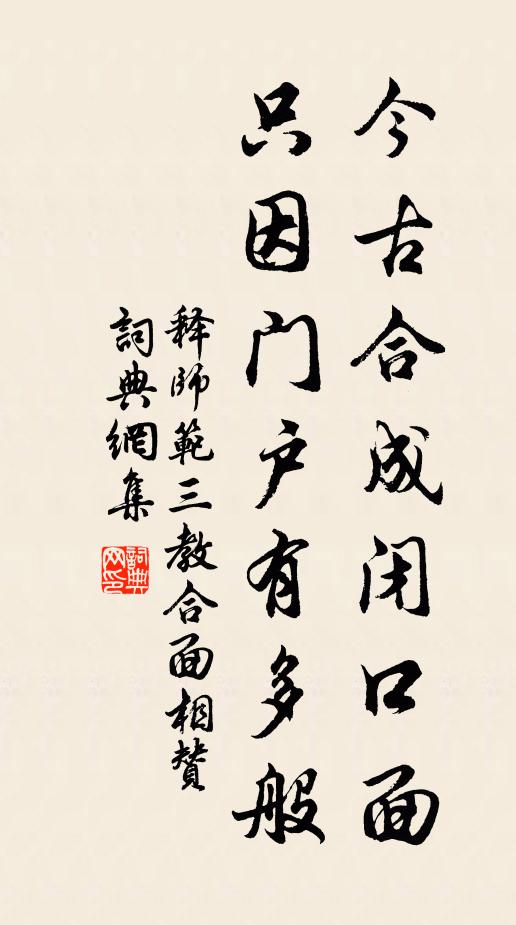 今古合成闭口面
只因门户有多般
释師範三教合面相贊
詞典網集
詞典网印